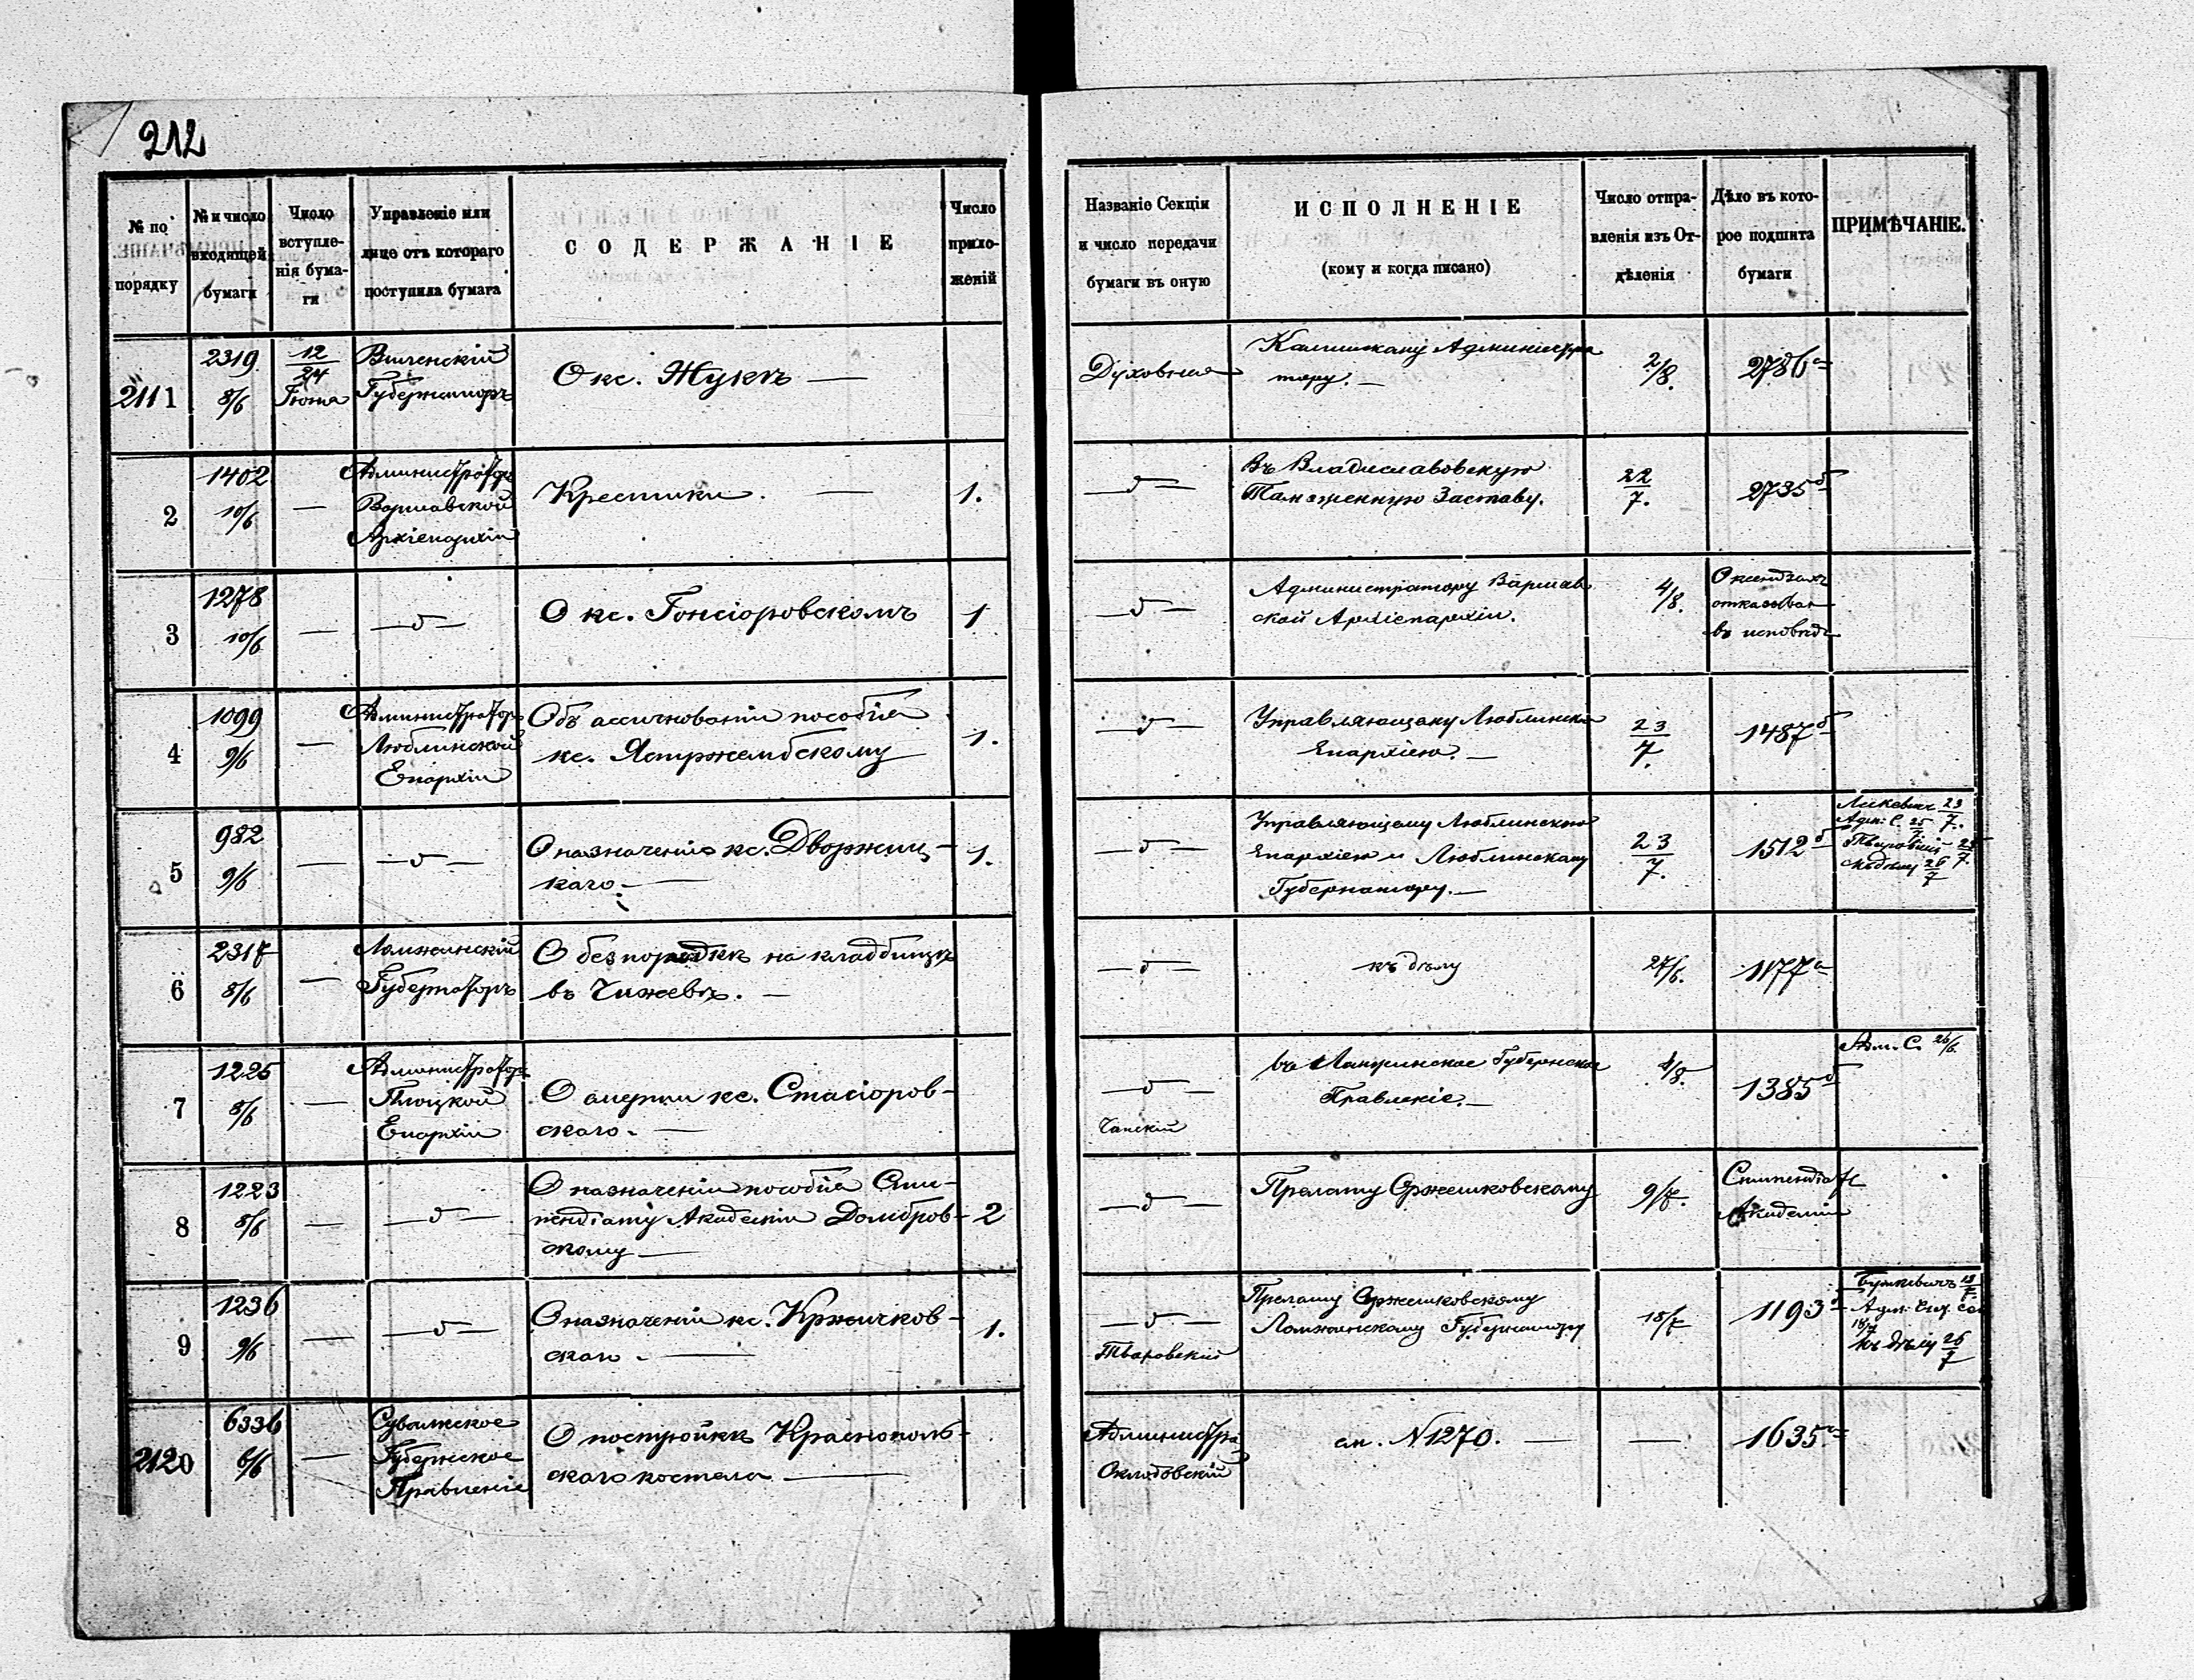 212
№ по порядку
№ и число входящей бумаги
Число вступле-
нія бума-
ги
Управленіе или
лице отъ котораго
поступила бумага
СОДЕРЖАНІЕ
Число
прило-
женій
Названіе Секціи
и число передачи
бумаги въ оную
ИСПОЛНЕНІЕ
(кому и когда писано)
Число отпра-
вленія изъ От-
дѣленія
Дѣло въ кото-
рое подшита
бумаги
ПРИМѢЧАНІЕ.
2111
2319
8/6
12/24
Іюня
Виленскій
Губернаторъ
О кс. Жукъ —
Духовная
Администра
тору. —
2/8.
2786 а
2
1402
10/6
—
Администраторъ
Варшавской
Архіепархіи
Крестики. —
1.
— " —
Въ Владиславовскую
Таможенную Заставу.
22/7.
2735 б
3
1278
10/6
—
— " —
О кс. Гонсіоровскомъ
1
— " —
Администратору Варшав
ской Архіепархіи.
4/8.
О ксендзахъ
отказыват
въ исповѣди
4
1099
9/6
—
Администраторъ
Люблинской
Епархіи
Объ ассигнованіи пособія
кс. Ястржембскому
1.
— " —
Управляющему Люблинскою
Епархіею. —
23/7.
1487 б
5
982
9/6
—
— " —
О назначеніи кс. Дворжиц-
каго —
1.
— " —
Управляющему Люблинскою
Епархіею и Люблинскому
Губернатору. —
23/7.
1512 б
23/7.
Адм. С. 25/7.
Тваровскій
къ дѣлу 26/7
6
2317
8/6
—
Ломжинскій
Губернаторъ
О безпорядкѣ на кладбищѣ
въ Чижевѣ. —
— " —
къ дѣлу
27/6.
1177 а
7
1225
8/6
—
Администраторъ
Плоцкой
Епархіи
О смерти кс. Стасіоров-
скаго. —
— " —
Чапскій
Въ Ломжинское Губернское
Правленіе. —
4/8.
1385 б
Адм. С. 26/6.
8
1223
8/6
—
— " —
О назначеніи пособія Сти-
пендіату Академіи Домбров-
скому —
2
— " —
Прелату Оржешковскому
9/7.
Стипендіаты
Академіи
9
1236
9/6
—
— " —
О назначеніи кс. Кржичков-
скаго. —
1.
— " —
Тваровскій
Прелату Оржешковскому
Ломжинскому Губернатору
18/7
1193
Адм.
18/7
Къ дѣлу 26/7
2120
6336
6/6
—
Сувалкское
Губернское
Правленіе
О постройкѣ Краснополь-
скаго костела —
Администра
Склодовскій
см. № 1270. —
—
1635 а